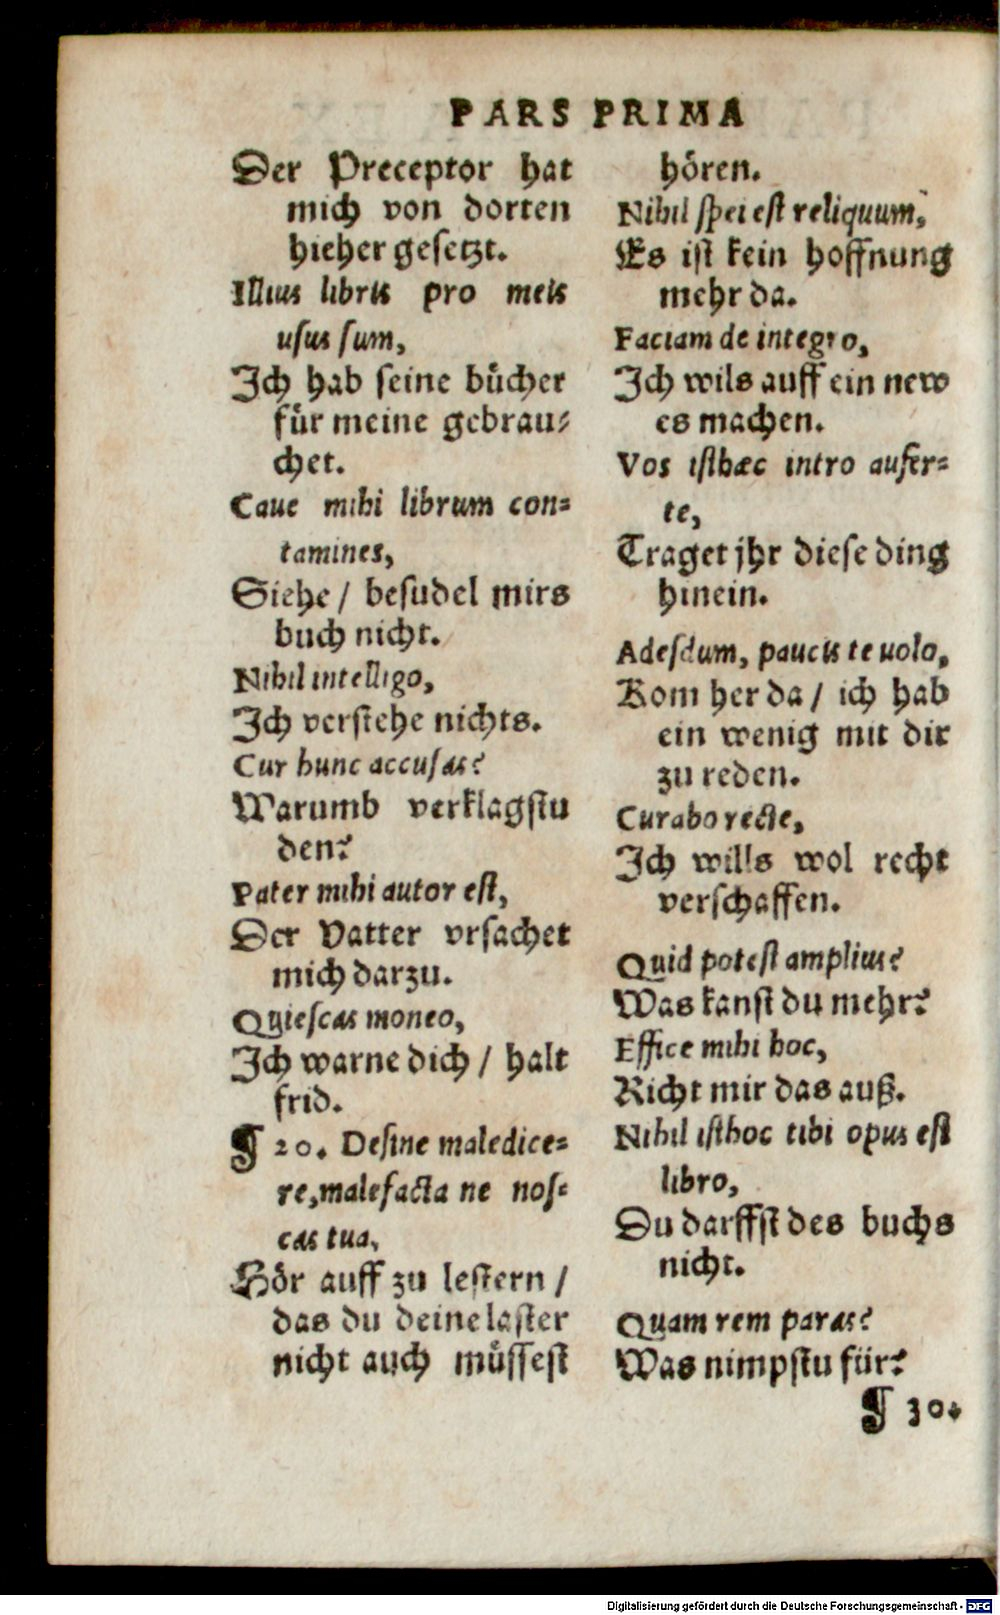 PARS PRIMA
Der Preceptor hat
mich von dorten
hieher gesetzt.
Illius libris pro meis
usus sum,
Ich hab seine bücher
für meine gebrau⸗
chet.
Caue mihi librum con⸗
tamines,
Siehe / besudel mirs
buch nicht.
Nihil intelligo,
Ich verstehe nichts.
Cur hunc accusas?
Warumb verklagstu
den?
Pater mihi autor est,
Der Vatter vrsachet
mich darzu.
Quiescas moneo,
Ich warne dich / halt
frid.
¶ 20. Desine maledice⸗
re, malefacta ne nos⸗
cas tua,
Hör auff zu lestern /
das du deine laster
nicht auch müssest
hören.
Nihil spei est reliquum,
Es ist kein hoffnung
mehr da.
Faciam de integro,
Ich wils auff ein new
es machen.
Vos isthæc intro aufer⸗
te,
Traget jhr diese ding
hinein.
Adesdum, paucis te uolo,
Kom her da / ich hab
ein wenig mit dir
zu reden.
Curabo recte,
Ich wills wol recht
verschaffen.
Quid potest amplius?
Was kanst du mehr?
Effice mihi hoc,
Richt mir das auß.
Nihil isthoc tibi opus est
libro,
Du darffst des buchs
nicht.
Quam rem paras?
Was nimpstu für?
¶ 30.
Digitalisierung gefördert durch die Deutsche Forschungsgemeinschaft - DFG